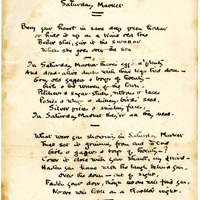 Saturday Market
Bury your heart in some deep green hollow
Or hide it up in a kind old tree
Better still, give it the swallow
When she goes over the sea.
In Saturday Market there's eggs a'plenty
And dead-alive ducks with their legs tied down –
Grey old gaffers & boys of twenty –
Girls & the women of the town –
Pitchers & sugar-sticks, ribbons & laces,
Posies & whips & dicky-birds' seed,
Silver pieces & smiling faces,
In Saturday Market they've all they need.
What were you showing in Saturday Market
That set it grinning from end to end
Girls & gaffers & boys of twenty – ?
Cover it close with your shawl, my friend –
Hasten you home with the laugh behind you,
Over the down – out of sight,
Fasten your door, though no one will find you,
No one will look on a Market night.